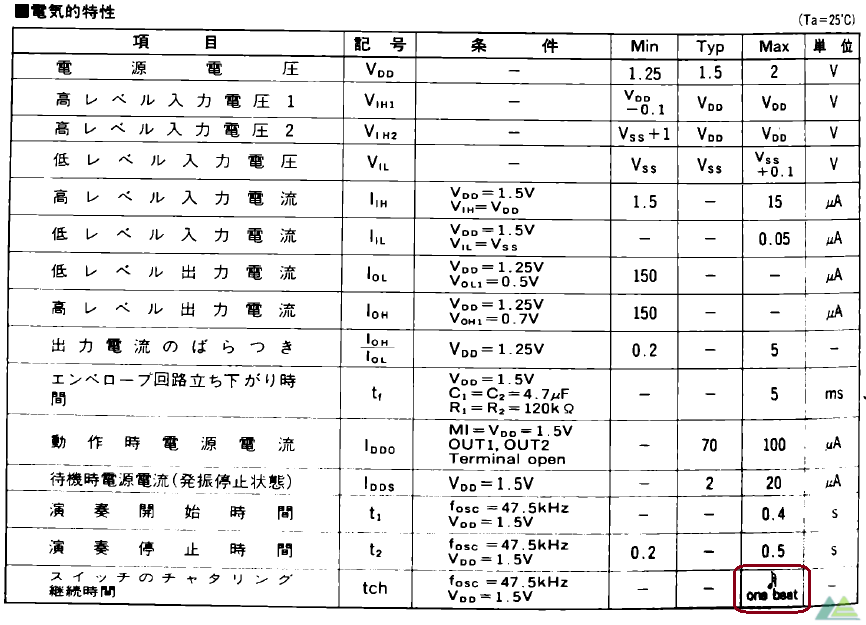 ■電気的特性
(Ta=25℃)
項 目 記 号 条 件 Min Typ Max 単 位
電 源 電 圧 VDD — 1.25 1.5 2 V
高レベル入力電圧1 VIH1 — VDD
−0.1 VDD VDD V
高レベル入力電圧2 VIH2 — VSS+1 VDD VDD V
低レベル入力電圧 VIL — VSS VSS VSS
+0.1 V
高レベル入力電流 IIH VDD=1.5V
VIH=VDD 1.5 — 15 μA
低レベル入力電流 IIL VDD=1.5V
VIL=VSS — — 0.05 μA
低レベル出力電流 IOL VDD=1.25V
VOL1=0.5V 150 — — μA
高レベル出力電流 IOH VDD=1.25V
VOH1=0.7V 150 — — μA
出力電流のばらつき IOH
IOL VDD=1.25V 0.2 — 5 —
エンベロープ回路立ち下がり時
間 tf VDD=1.5V
C1=C2=4.7μF
R1=R2=120kΩ — — 5 ms
動作時電源電流 IDDO MI=VDD=1.5V
OUT1, OUT2
Terminal open — 70 100 μA
待機時電源電流(発振停止状態) IDDS VDD=1.5V — 2 20 μA
演奏開始時間 t1 fosc=47.5kHz
VDD=1.5V — — 0.4 s
演奏停止時間 t2 fosc=47.5kHz
VDD=1.5V 0.2 — 0.5 s
スイッチのチャタリング
継続時間 tch fosc=47.5kHz
VDD=1.5V — — one beat —